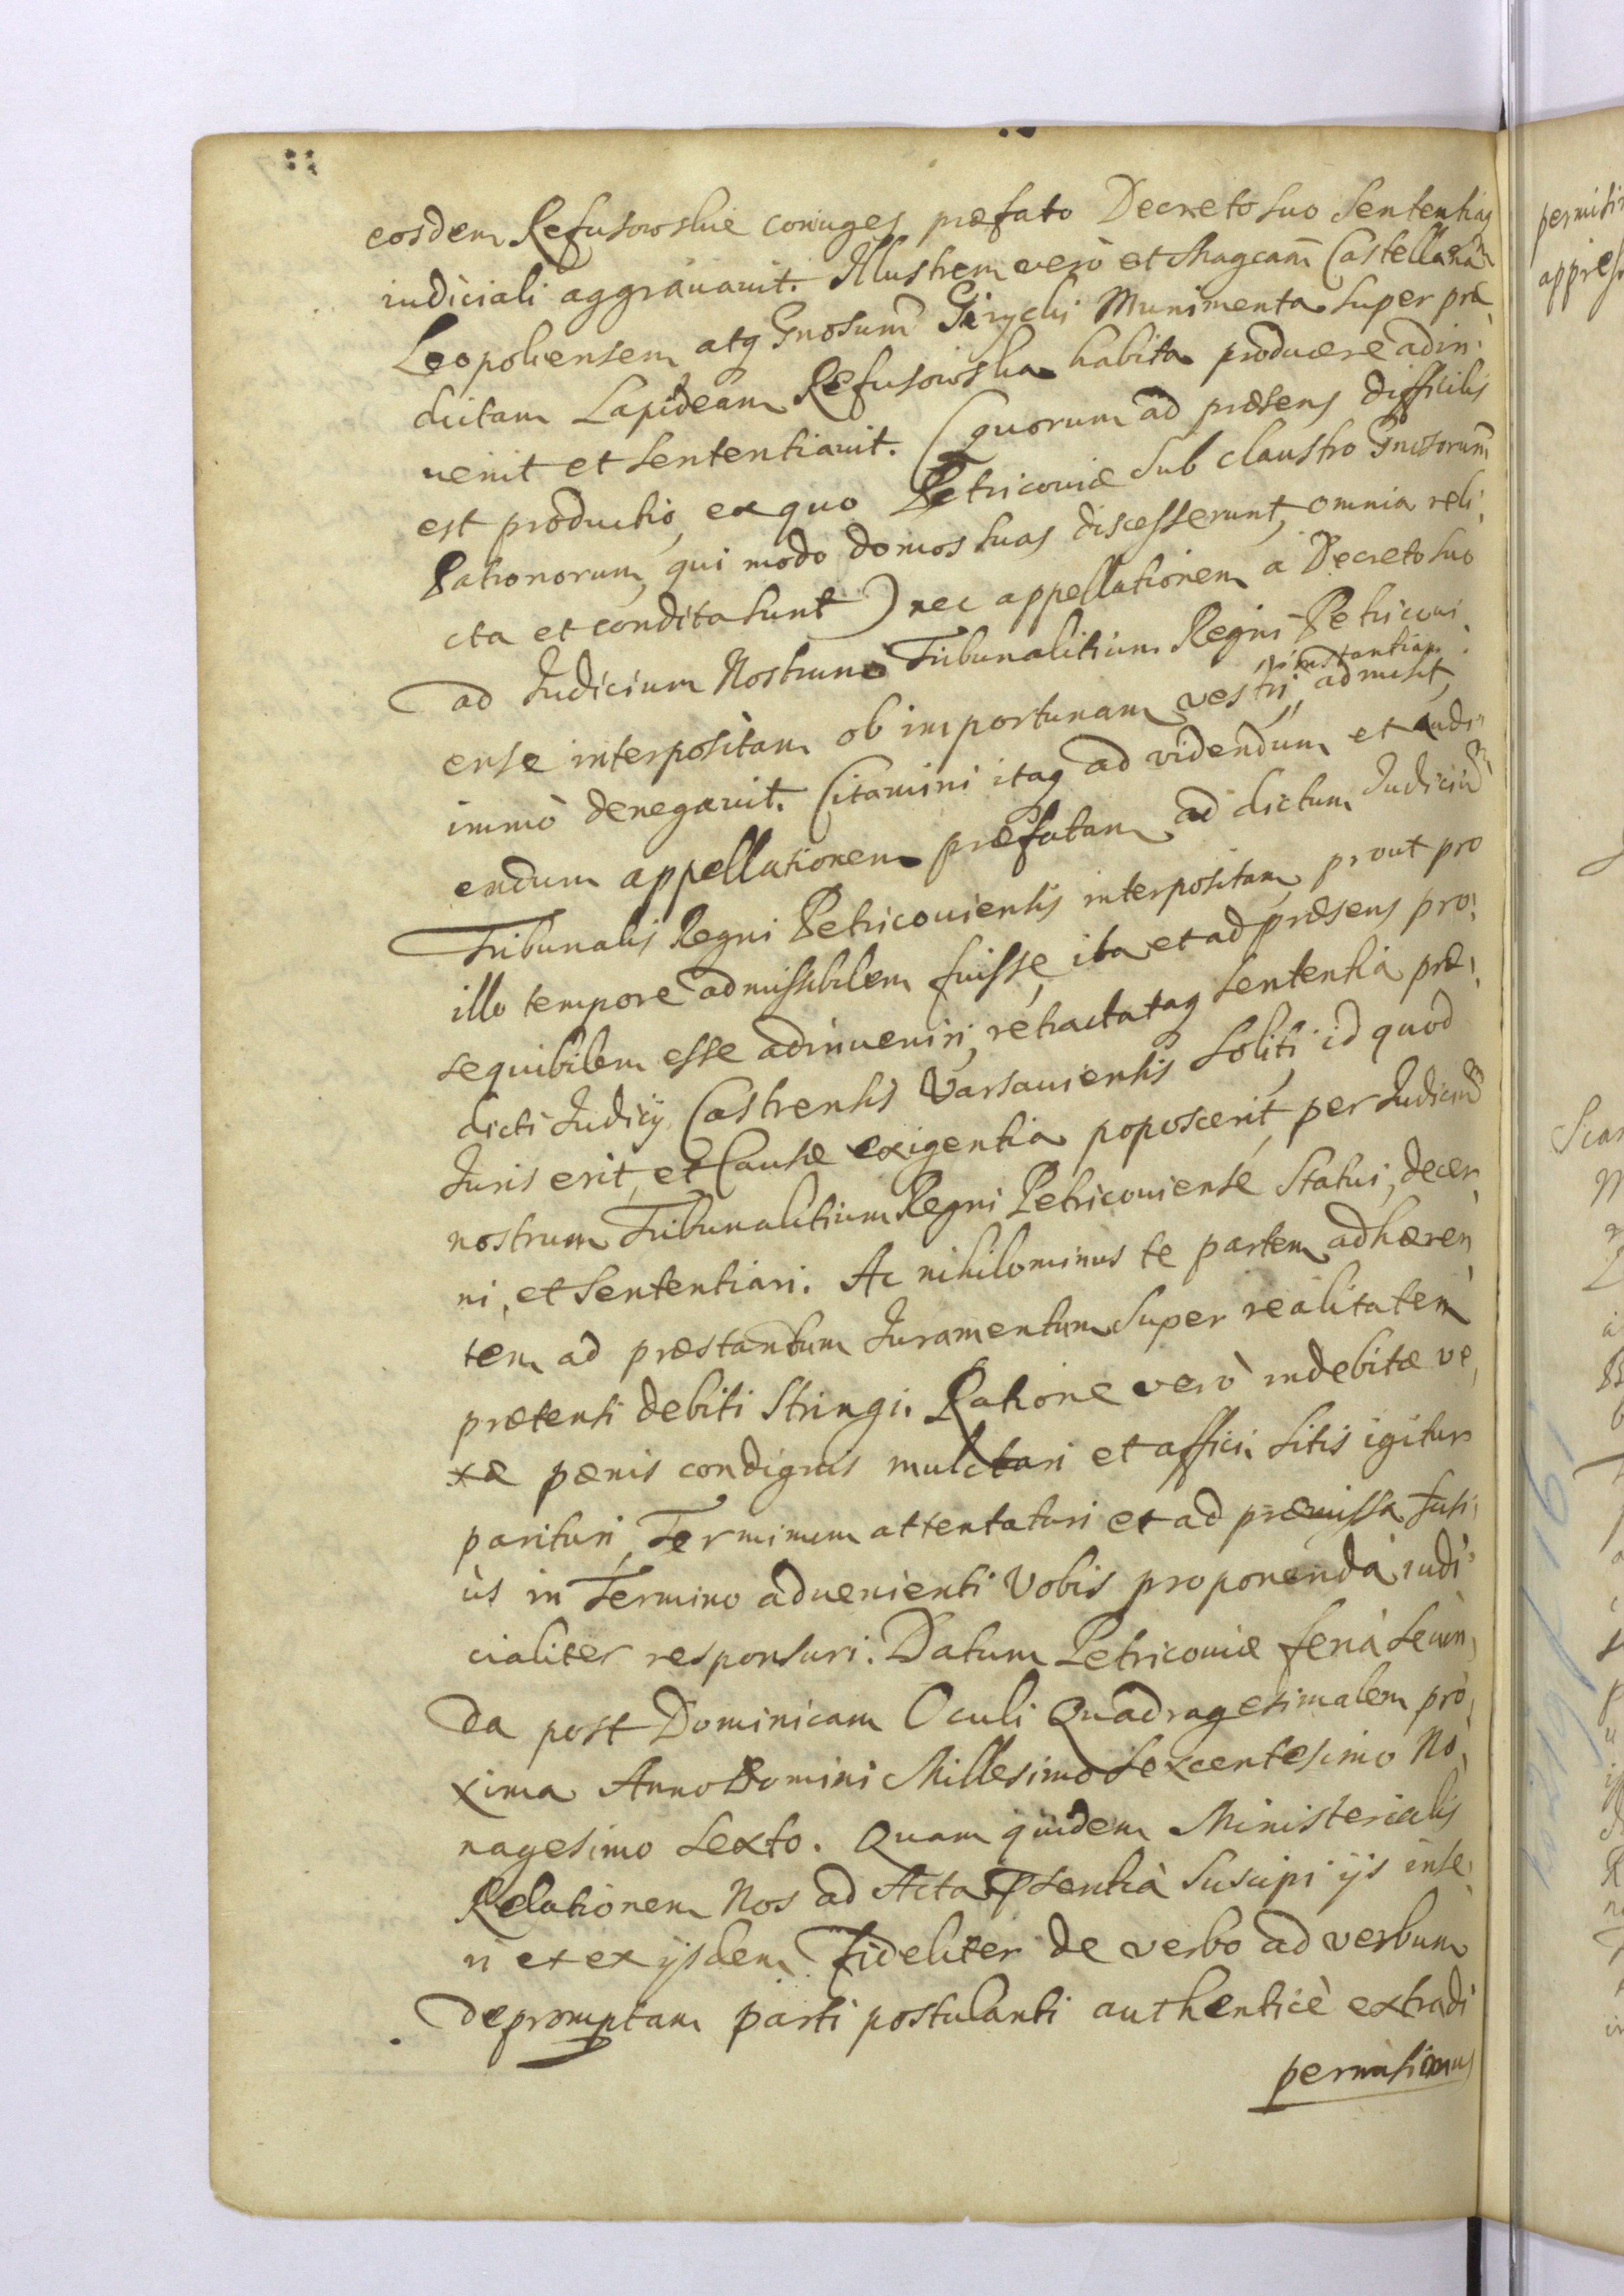 eosdem Refusowskie coniuges præfato Decreto suo Sententiaq
iudiciali aggrauauit. Illustrem verò et Magcam̃ Castellanam
Leopoliensem atq Gnosum̃ Giżycki Munimenta super præ,
dictam Lapideam Refusowska habita producere adin,
uenit et sententiauit. (quorum ad præsens difficilis
est productio, ex quo Petricouiæ sub claustro Gnosorum̃
Patronorum, qui modo domos suas discesserunt, omnia reli,
cta et condita sunt) nec appellationem a Decreto suo
ad Iudicium Nostrum Tribunalitium Regni Petricoui,
ense interpositam ob importunam vestri instantiam admisit,
immò denegauit. Citamini itaq ad videndum et audi,
endum appellationem præfatam ad dictum Iudiciũ
Tribunalis Regni Petricouiensis interpositam, prout pro
illo tempore admissibilem fuisse, ita et ad præsens pro,
sequibilem esse adinueniri, retractataq sententia præ,
dicti Iudicij Castrensis Varsauiensis soliti, id quod
Iuris erit, et Causæ exigentia poposcerit, per Iudiciũ
nostrum Tribunalitium Regni Petricouiense Statui, decer
ni, et Sententiari. Ac nihilominus te partem adhæren
tem ad præstandum Iuramentum super realitatem
prætensi debiti Stringi. Ratione verò indebitæ ve,
xæ pænis condignis mulctari et affici. Sitis igitur
parituri, Terminum attentaturi et ad præmissa fusi,
ùs in Termino aduenienti Vobis proponenda iudi,
cialiter responsuri. Datum Petricouiæ feria Secun,
da post Dominicam Oculi Quadragesimalem pro,
xima Anno Domini Millesimo Sexcentesimo No,
nagesimo Sexto. Quam quidem Ministerialis
Relationem Nos ad Acta pñsentia Suscipi ijs inse,
ri et ex ijsdem Fideliter de verbo ad verbum
depromptam parti postulanti authenticè extradi
permisimus